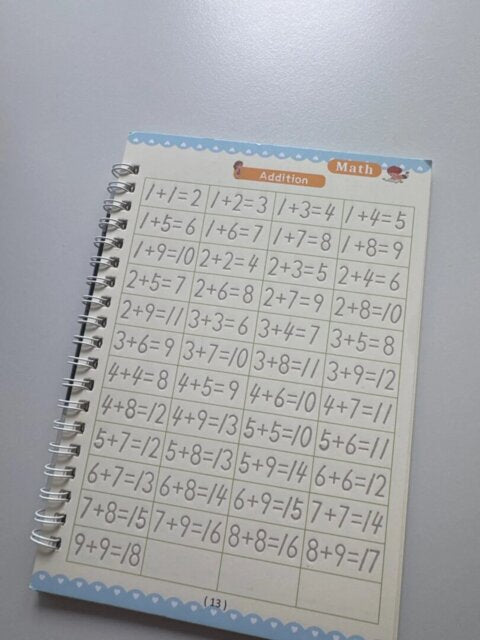 Math
Addition
1+1=2 1+2=3 1+3=4 1+4=5
1+5=6 1+6=7 1+7=8 1+8=9
1+9=10 2+2=4 2+3=5 2+4=6
2+5=7 2+6=8 2+7=9 2+8=10
2+9=11 3+3=6 3+4=7 3+5=8
3+6=9 3+7=10 3+8=11 3+9=12
4+4=8 4+5=9 4+6=10 4+7=11
4+8=12 4+9=13 5+5=10 5+6=11
5+7=12 5+8=13 5+9=14 6+6=12
6+7=13 6+8=14 6+9=15 7+7=14
7+8=15 7+9=16 8+8=16 8+9=17
9+9=18
(13)